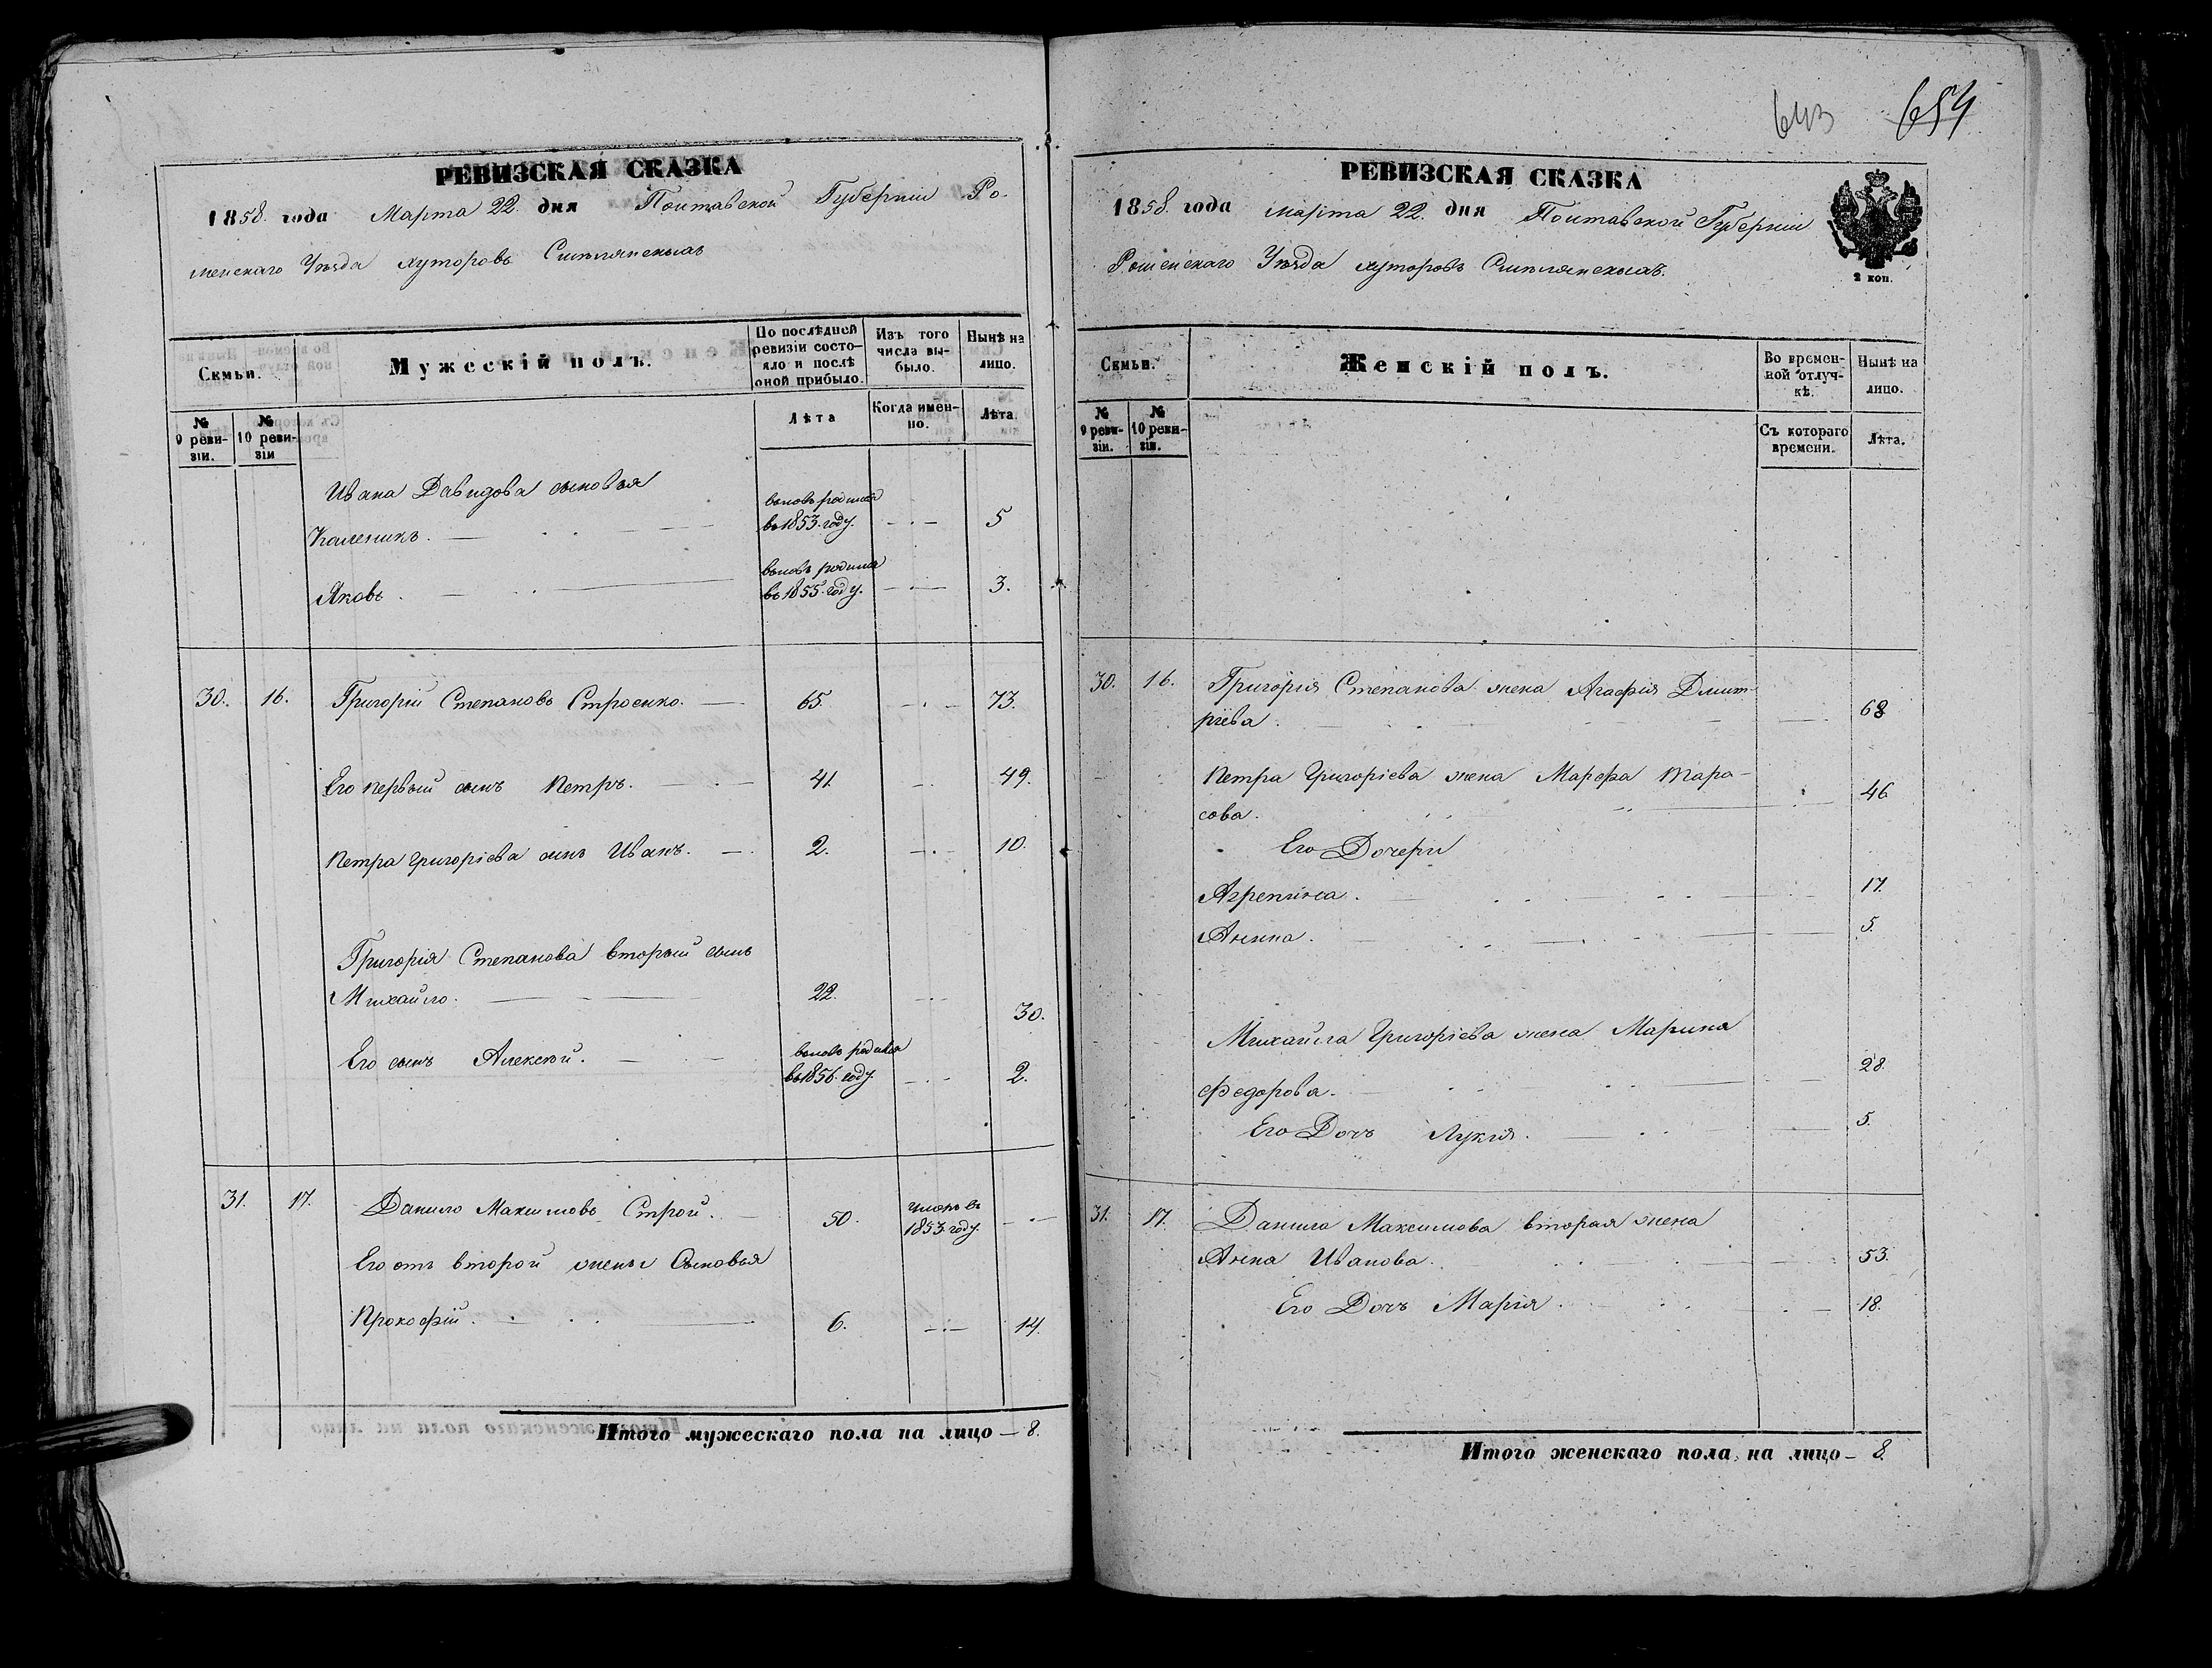 643 654
РЕВИЗСКАЯ СКАЗКА
1858. года Марта 22. дня Полтавской Губерніи Ро-
менскаго Уѣзда хуторовъ
Семьи.
Мужескій полъ.
По послѣдней ревизіи состояло и послѣ оной прибыло.
Изъ того числа выбыло.
Нынѣ на лицо.
№ 9 ревизіи.
№ 10 ревизіи
Лѣта
Когда именно.
Лѣта
Ивана Давидова сыновья
Каленикъ. вновь родился въ 1853. году. 5
Яковъ. вновь родился въ 1855. году. 3.
30. 16. Григорій Степановъ Строенко. 65. 73.
Его первый сынъ Петръ. 41. 49.
Петра Григоріева сынъ Иванъ. 2. 10.
Григорія Степанова вторый сынъ
Михайло. 22. 30.
Его сынъ Алексѣй. вновь родился въ 1856. году. 2.
31. 17. Данило Максимовъ Строй. 50. умеръ въ 1853. году.
Его отъ второй жены Сыновья
Прокофій. 6. 14.
Итого мужескаго пола на лицо — 8.
РЕВИЗСКАЯ СКАЗКА
1858. года марта 22. дня Полтавской Губерніи
Роменскаго Уѣзда хуторовъ
2 коп.
Семьи.
Женскій полъ.
Во временной отлучкѣ.
Нынѣ на лицо.
№ 9 ревизіи.
№ 10 ревизіи.
Съ котораго времени.
Лѣта.
30. 16. Григорія Степанова жена Агафія Дмит-
ріева. 68
Петра Григоріева жена Марфа Тара-
сова. 46
Его Дочери
Агрепина. 17.
Анна. 5.
Михайла Григоріева жена Марина
Федорова. 28.
Его Дочь Лукія. 5.
31. 17. Данила Максимова вторая жена
Анна Иванова. 53.
Его Дочь Марія. 18.
Итого женскаго пола на лицо — 8.